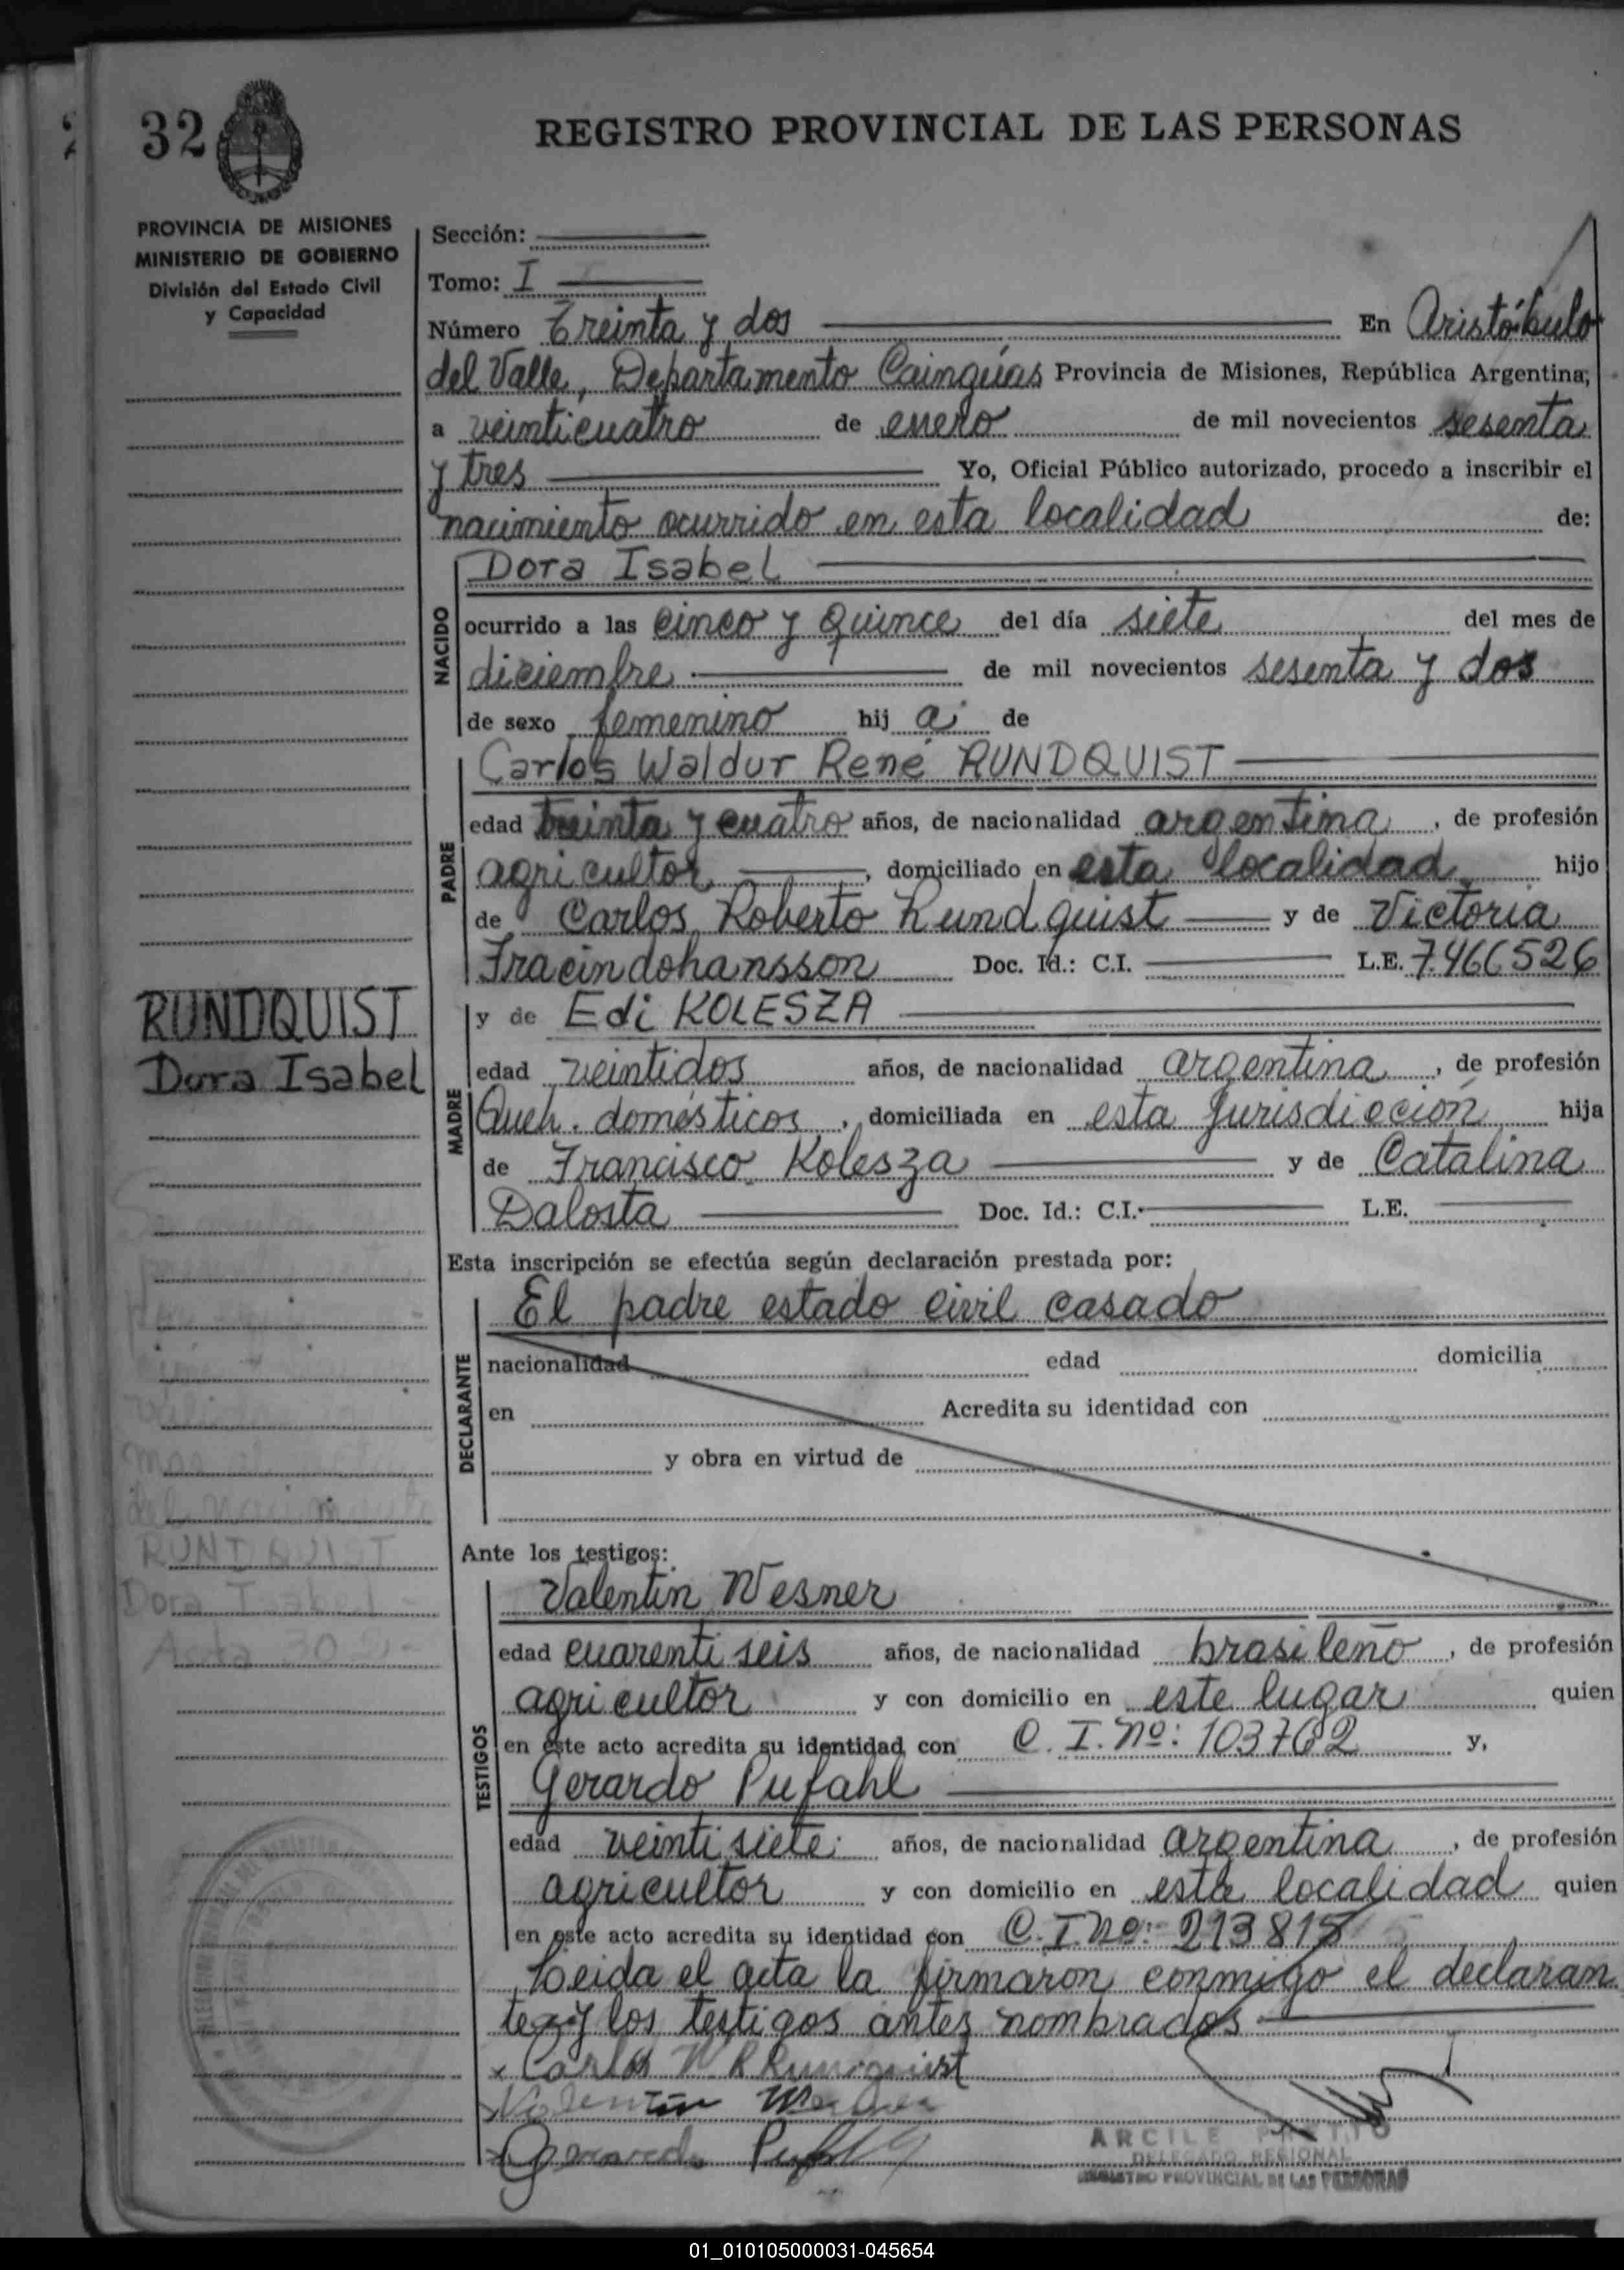 32
REGISTRO PROVINCIAL DE LAS PERSONAS
PROVINCIA DE MISIONES
MINISTERIO DE GOBIERNO
División del Estado Civil
y Capacidad
Sección:
Tomo: I
Número Treinta y dos En Aristóbulo
del Valle, Departamento Cainguás Provincia de Misiones, República Argentina;
a veinticuatro de enero de mil novecientos sesenta
y tres Yo, Oficial Público autorizado, procedo a inscribir el
nacimiento ocurrido en esta localidad de:
NACIDO
Dora Isabel
ocurrido a las cinco y quince del día siete del mes de
diciembre de mil novecientos sesenta y dos
de sexo femenino hij a de
PADRE
Carlos Waldur René RUNDQUIST
edad treinta y cuatro años, de nacionalidad argentina, de profesión
agricultor, domiciliado en esta localidad hijo
de Carlos Roberto Rundquist y de Victoria
Fracindohansson Doc. Id.: C.I. L.E. 7.466526
RUNDQUIST
Dora Isabel
MADRE
y de Edi KOLESZA
edad veintidos años, de nacionalidad argentina, de profesión
Queh. domésticos, domiciliada en esta Jurisdicción hija
de Francisco Kolesza y de Catalina
Dalosta Doc. Id.: C.I. L.E.
Esta inscripción se efectúa según declaración prestada por:
DECLARANTE
El padre estado civil casado
nacionalidad edad domicilia
en Acredita su identidad con
y obra en virtud de
del nacimiento
RUNDQUIST
Dora Isabel
Acta 302
Ante los testigos:
TESTIGOS
Valentin Wesner
edad cuarenti seis años, de nacionalidad brasileño, de profesión
agricultor y con domicilio en este lugar quien
en este acto acredita su identidad con C. I. Nº: 103762 y,
Gerardo Pufahl
edad veinti siete años, de nacionalidad argentina, de profesión
agricultor y con domicilio en esta localidad quien
en este acto acredita su identidad con C. I. Nº: 213815
Leida el acta la firmaron conmigo el declaran
te y los testigos antes nombrados
x Carlos W R Rundquist
Valentin Wesner
x Gerardo Pufahl
ARCILE
DELEGADO REGIONAL
REGISTRO PROVINCIAL DE LAS PERSONAS
01_010105000031-045654